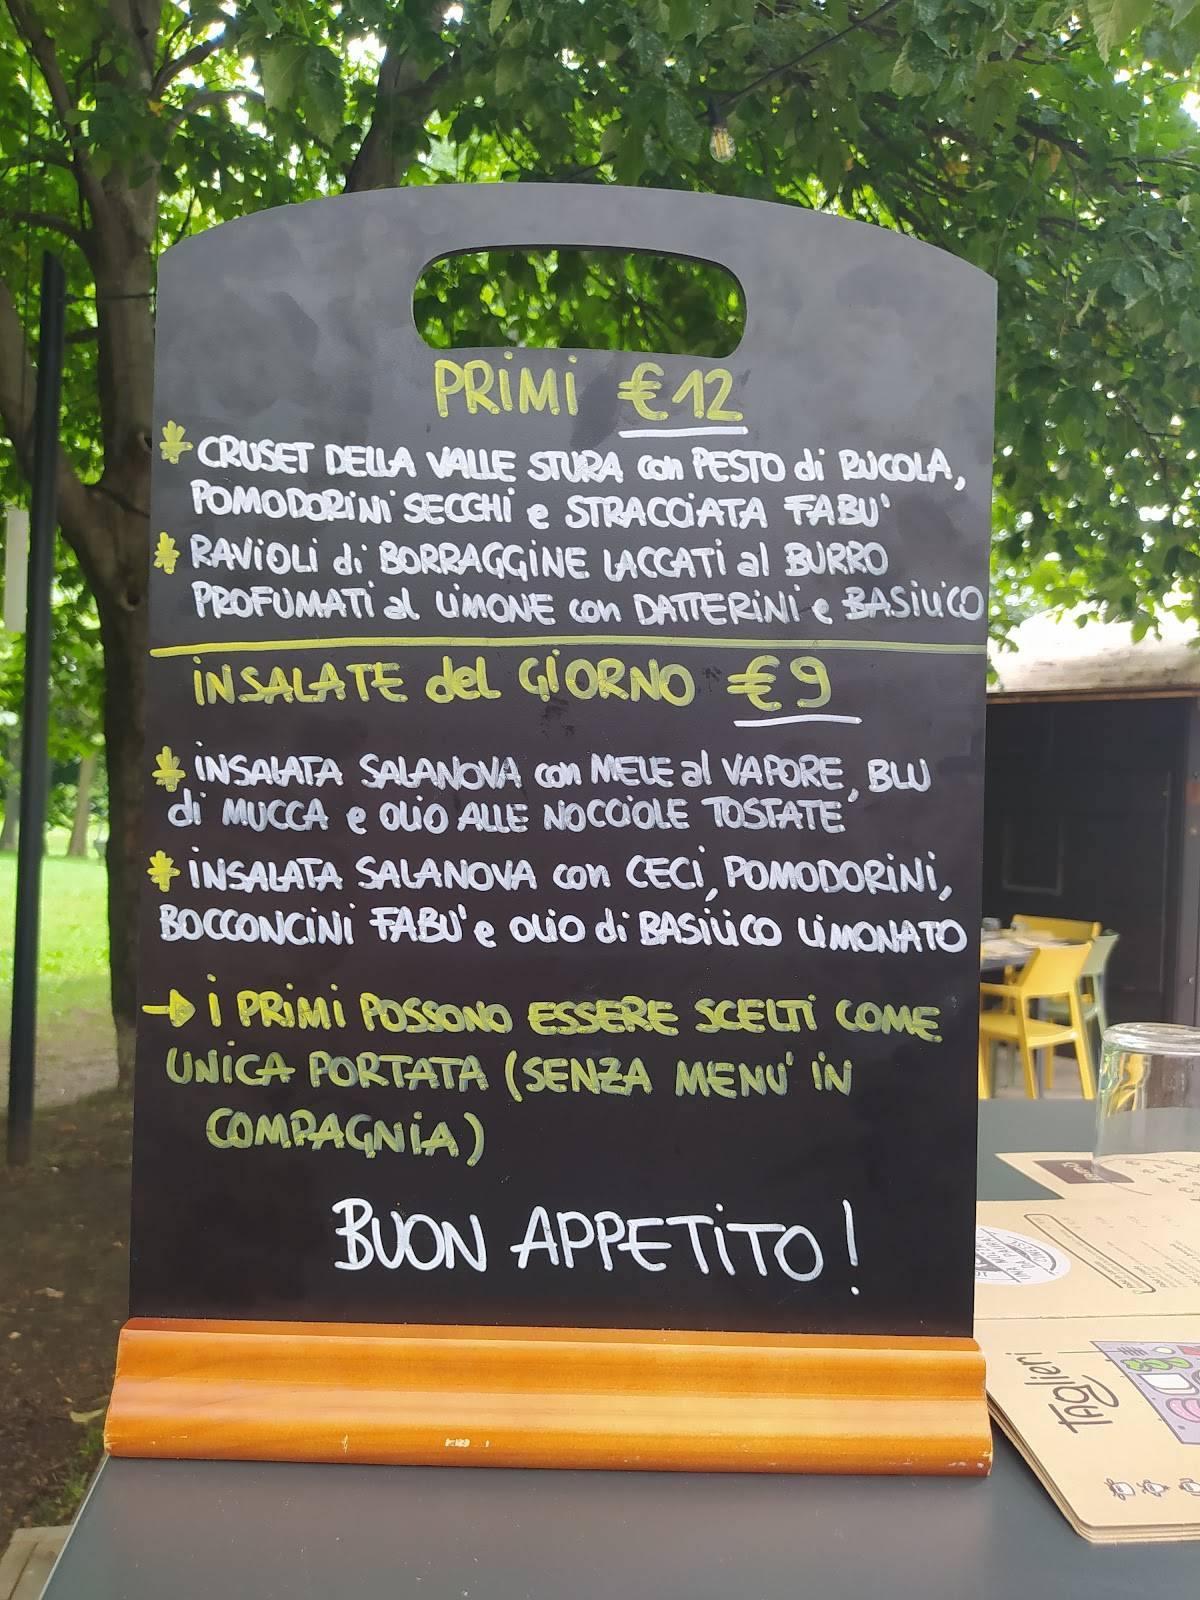 PRIMI €12
* CRUSET DELLA VALLE STURA con PESTO di RUCOLA,
POMODORINI SECCHI e STRACCIATA FABU'
* RAVIOLI di BORRAGGINE LACCATI al BURRO
PROFUMATI al LIMONE con DATTERINI e BASILICO
INSALATE del GIORNO €9
* INSALATA SALANOVA con MELE al VAPORE, BLU
di MUCCA e OLIO ALLE NOCCIOLE TOSTATE
* INSALATA SALANOVA con CECI, POMODORINI,
BOCCONCINI FABU' e OLIO di BASILICO LIMONATO
→ I PRIMI POSSONO ESSERE SCELTI COME
UNICA PORTATA (SENZA MENU' IN
COMPAGNIA)
BUON APPETITO!
Taglieri